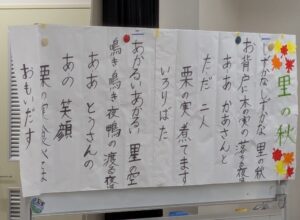 里の秋
しずかなしずかな 里の秋
お背戸に木の実の落ちる夜は
ああ かあさんと
ただ 二人
栗の実 煮てます
いろりばた
あかるいあかるい 里の空
鳴き鳴き夜鴨の渡る夜は
ああ とうさんの
あの 笑顔
栗の実 食べては
おもいだす